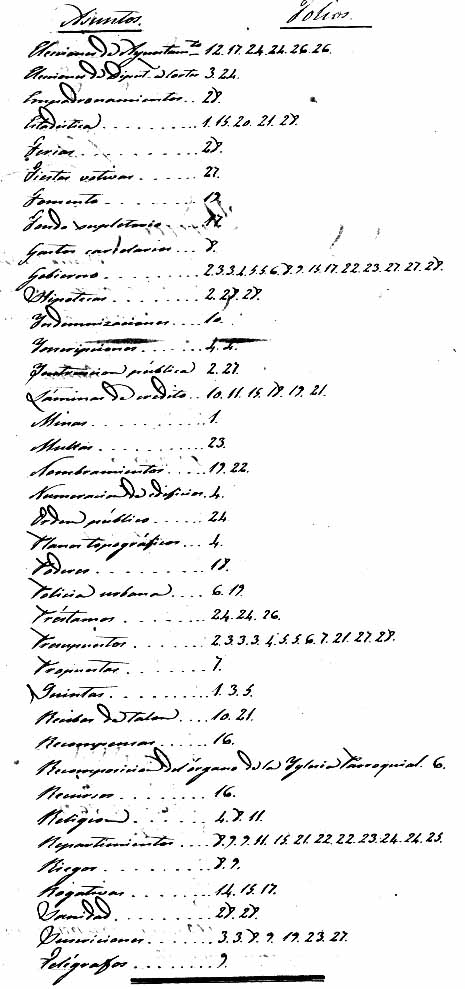 Asuntos. Folios.
Elecciones de Ayuntam.to 12.17.24.24.26.26.
Elecciones de Diput. a Cortes 3.24.
Empadronamientos .. 28.
Estadística . . . . . . . . 1.15.20.21.28.
Ferias . . . . . . . . . 28.
Fiestas votivas . . . . . . 27.
Fomento . . . . . . . . 19.
Fondo supletorio . . . 17.
Gastos carcelarios . . . 8.
Gobierno . . . . . . . . 2.3.3.4.5.5.6.8.9.15.17.22.23.27.27.28.
Hipotecas . . . . . . . . 2.28.28.
Indemnizaciones . . . . 10.
Inscripciones . . . . . . 4.4.
Instruccion pública . 2.27.
Láminas de crédito . . . 10.11.15.18.19.21.
Minas . . . . . . . . . . 1.
Multas . . . . . . . . . 23.
Nombramientos . . . . 19.22.
Numeracion de edificios. 4.
Orden público . . . . . 24
Planos topográficos . . . 4.
Poderes . . . . . . . . . 18.
Policia urbana . . . . 6.19.
Préstamos . . . . . . . . 24.24.26.
Presupuestos . . . . . . 2.3.3.3.4.5.5.6.7.21.27.28.
Propuestas . . . . . . . 7.
Quintas . . . . . . . . . 1.3.5.
Recibos de talon . . . . 10.21.
Recompensas . . . . . . 16.
Recomposicion del órgano de la Yglesia Parroquial. 6.
Recursos . . . . . . . . 16.
Religion . . . . . . . . 4.8.11.
Repartimientos . . . . 8.9.9.11.15.21.22.22.23.24.24.25.
Riegos . . . . . . . . . 8.9.
Rogativas . . . . . . . . 14.15.17.
Sanidad . . . . . . . . 28.28.
Suscriciones . . . . . . 3.3.8.9.19.23.27.
Telégrafos . . . . . . . 9.